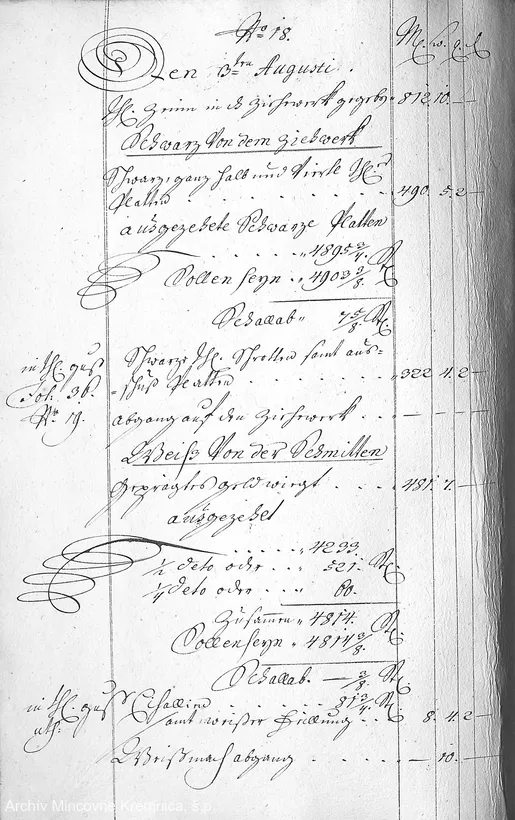 No 18.
M. w. q. d
Den 13ten Augusti.
Th. Zeinn in ds Ziehwerk gegeben 812. 10. —
Schwarz Von dem Ziehwerk
Schwarze ganz halb und Vierte Thl.r
Platten . . . . . . 490. 5. 2 —
ausgezehlte Schwarze Platten
. . . . . 4895 3/4. St.
Sollen seyn . . 4903 3/8.
Schallab 7 5/8. St.
in Thl. guss
Fol. 36.
No 19.
Schwarze Thl. Schrotten samt aus-
schuß Platten . . . . . 322 4. 2 —
abgang auf den Ziehwerk . . . — — —
Weiß Von der Schmitten
Geprägtes geld wiegt . . . . 481. 7. —
ausgezehlt
. . . . . 4233.
1/2 deto oder . . . 521. St.
1/4 deto oder . . . 60.
Zusammen 4814. St.
Sollen seyn 4814 3/8.
Schallab. — 3/8. St.
in Thl. guss
uts.
. . . . . . 81 3/4. St.
samt weißer . . . 8. 4. 2 —
Weißmach abgang . . . . . — 10. —
Archív Mincovne Kremnica, š.p.